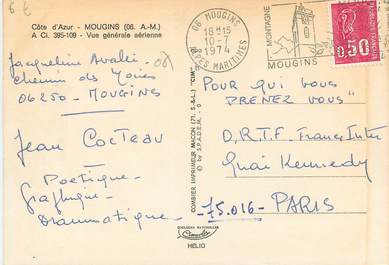 6 E
Côte d'Azur - MOUGINS (06. A.-M.)
A Ci. 395-109 - Vue générale aérienne
Jacqueline
Chemin des
06250 - MOUGINS
Jean Cocteau
Poétique -
Graphique -
Dramatique -
"CIM"
COMBIER IMPRIMEUR MACON (71. S.-&-L.)
© by S.P.A.D.E.M. - G
COULEURS NATURELLES
Combier
HÉLIO
06 MOUGINS
18H15
10-7
1974
ALPES MARITIMES
MONTAGNE
MOUGINS
0,50
POSTES
REPUBLIQUE FRANCAISE
POUR QUI VOUS
PRENEZ VOUS"
O.R.T.F. France Inter
Quai Kennedy
75.016 - PARIS